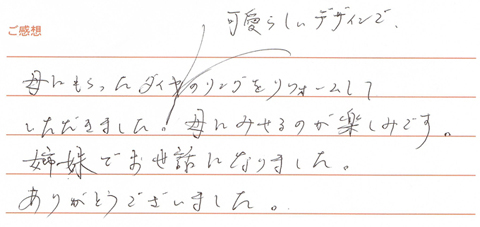 ご感想
可愛らしいデザインで、
母にもらったダイヤのリングをリフォームして
いただきました。母にみせるのが楽しみです。
姉妹でお世話になりました。
ありがとうございました。